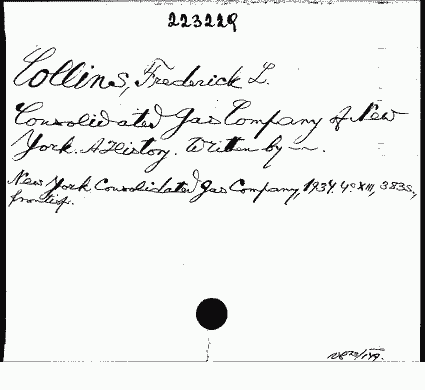 223229
Collins, Frederick L.
Consolidated Gas Company of New
York. A History. Written by —.
New York Consolidated Gas Company, 1934. 4° XIII, 383S.,
frontisp.